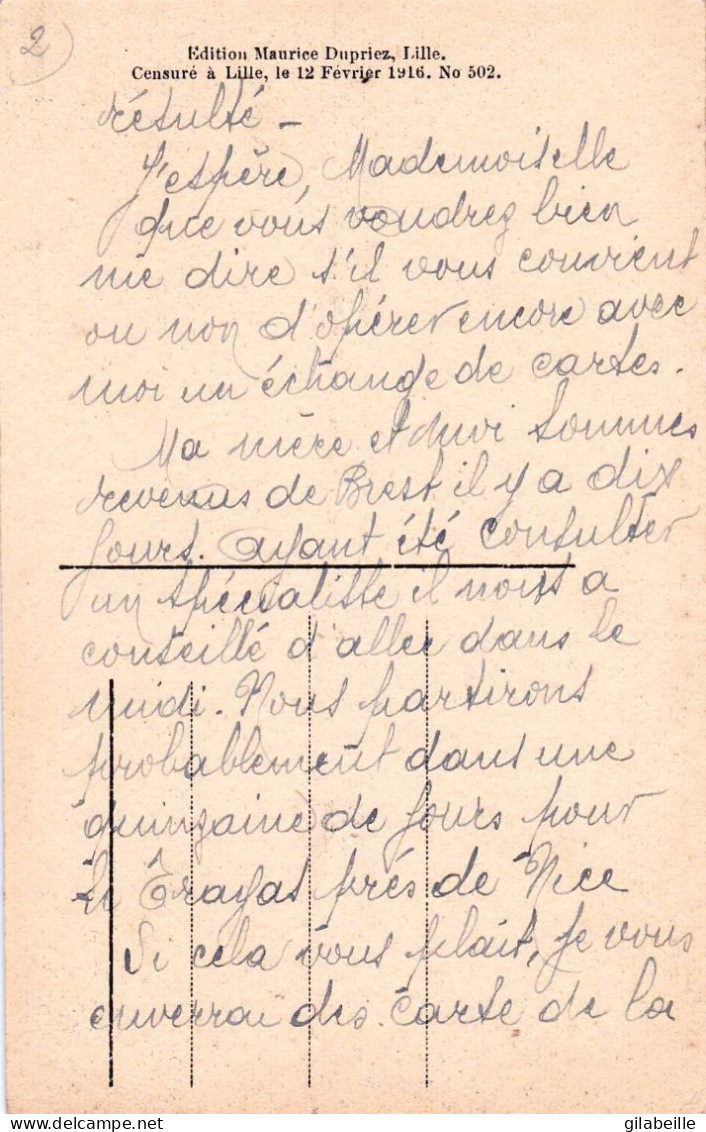 2
Edition Maurice Dupriez, Lille.
Censuré à Lille, le 12 Février 1916. No 502.
résulté -
J'espère, Mademoiselle
que vous voudrez bien
me dire s'il vous convient
ou non d'opérer encore avec
moi un échange de cartes.
Ma mère et moi sommes
revenus de Brest il y a dix
jours. ayant été consulter
un spécialiste il nous a
conseillé d'aller dans le
midi. Nous partirons
probablement dans une
quinzaine de jours pour
près de Nice
Si cela vous plait, je vous
enverrai des carte de la
gilabeille